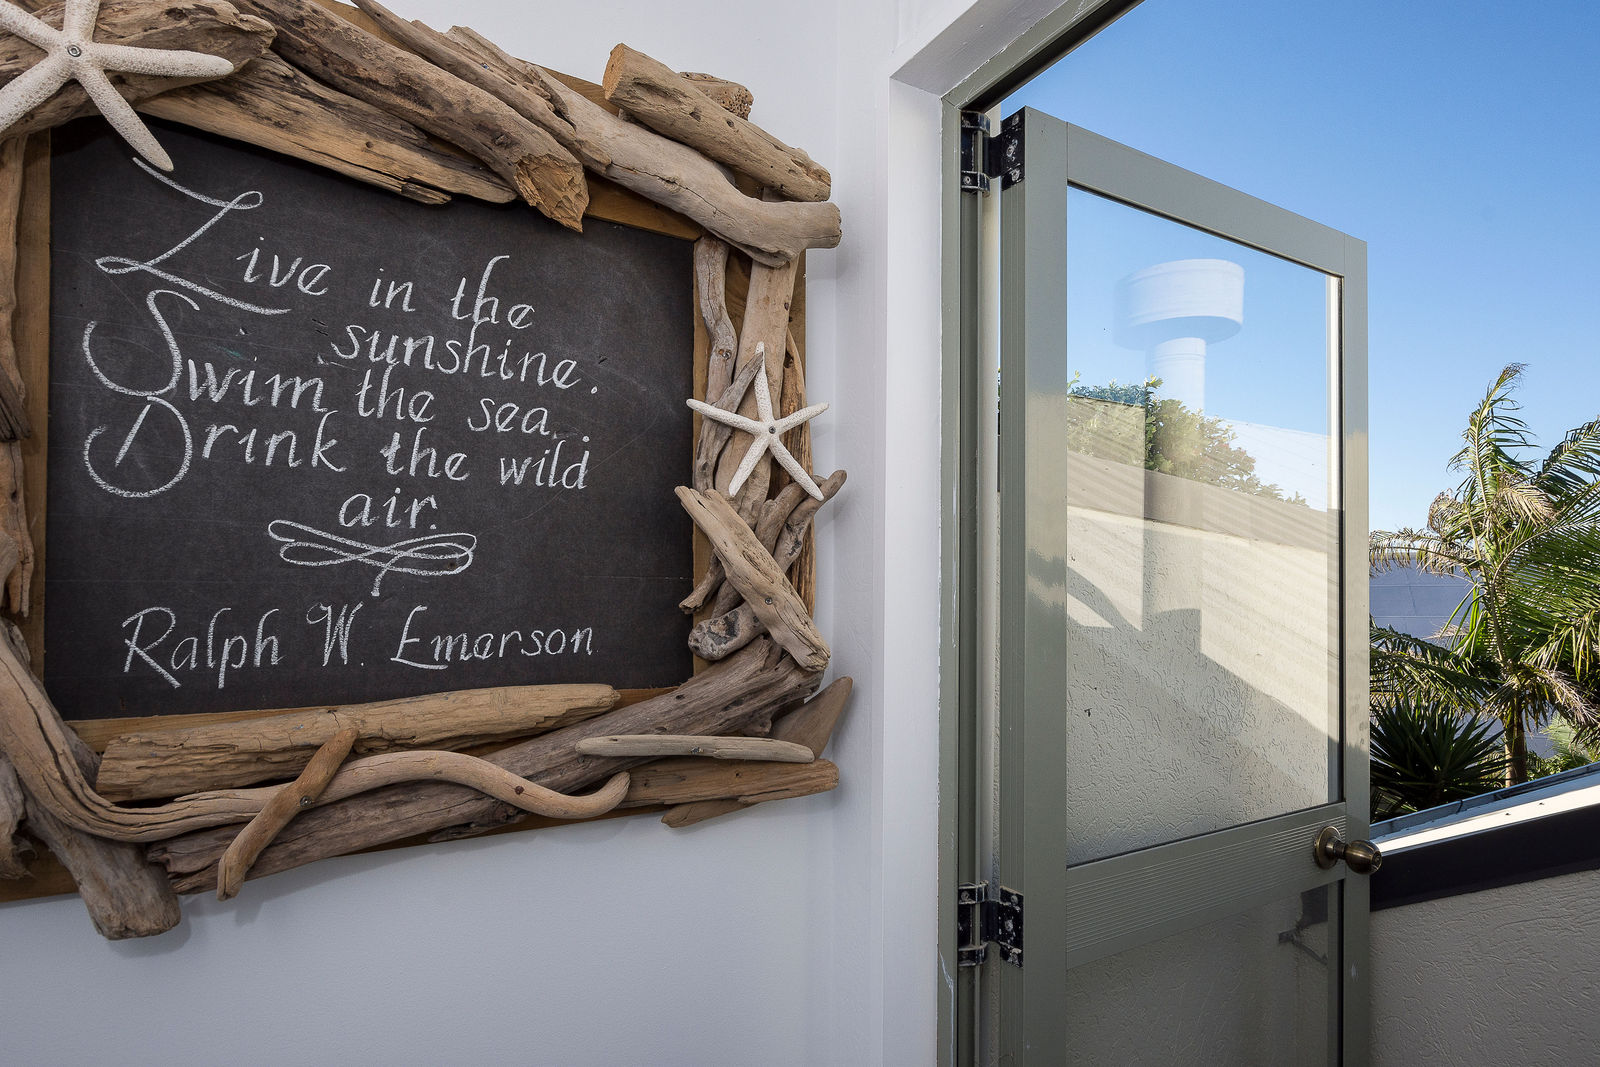 Live in the
sunshine.
Swim the sea.
Drink the wild
air.
Ralph W. Emerson